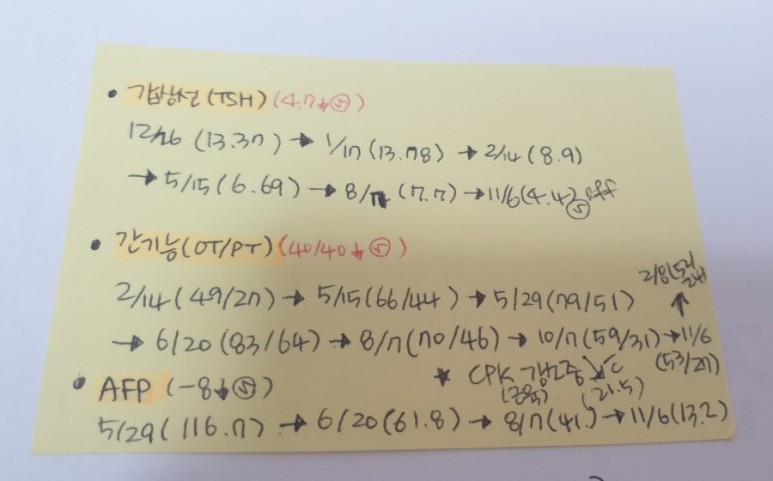 • 갑상선(TSH) (4.7↓ⓢ)
12/26 (13.37) → 1/17 (13.78) → 2/14 (8.9)
→ 5/15 (6.69) → 8/7 (7.7) → 11/6 (4.4) ⓢ off
• 간기능(OT/PT) (40/40↓ⓢ)
2/14 (49/27) → 5/15 (66/44) → 5/29 (79/51)
→ 6/20 (83/64) → 8/7 (70/46) → 10/7 (59/31) → 11/6 (53/27)
★ CPK 검사중
(21.5)
• AFP (-8↓ⓢ)
5/29 (116.7) → 6/20 (61.8) → 8/7 (41.) → 11/6 (13.2)